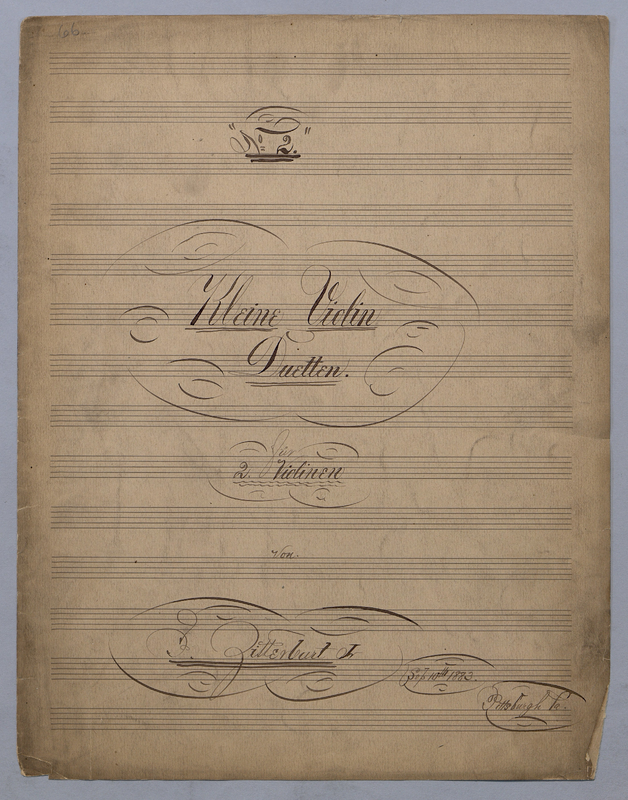 66
"No 2."
Kleine Violin
Duetten.
für
2 Violinen
Von
Sep 10th 1883.
Pittsburgh Pa.